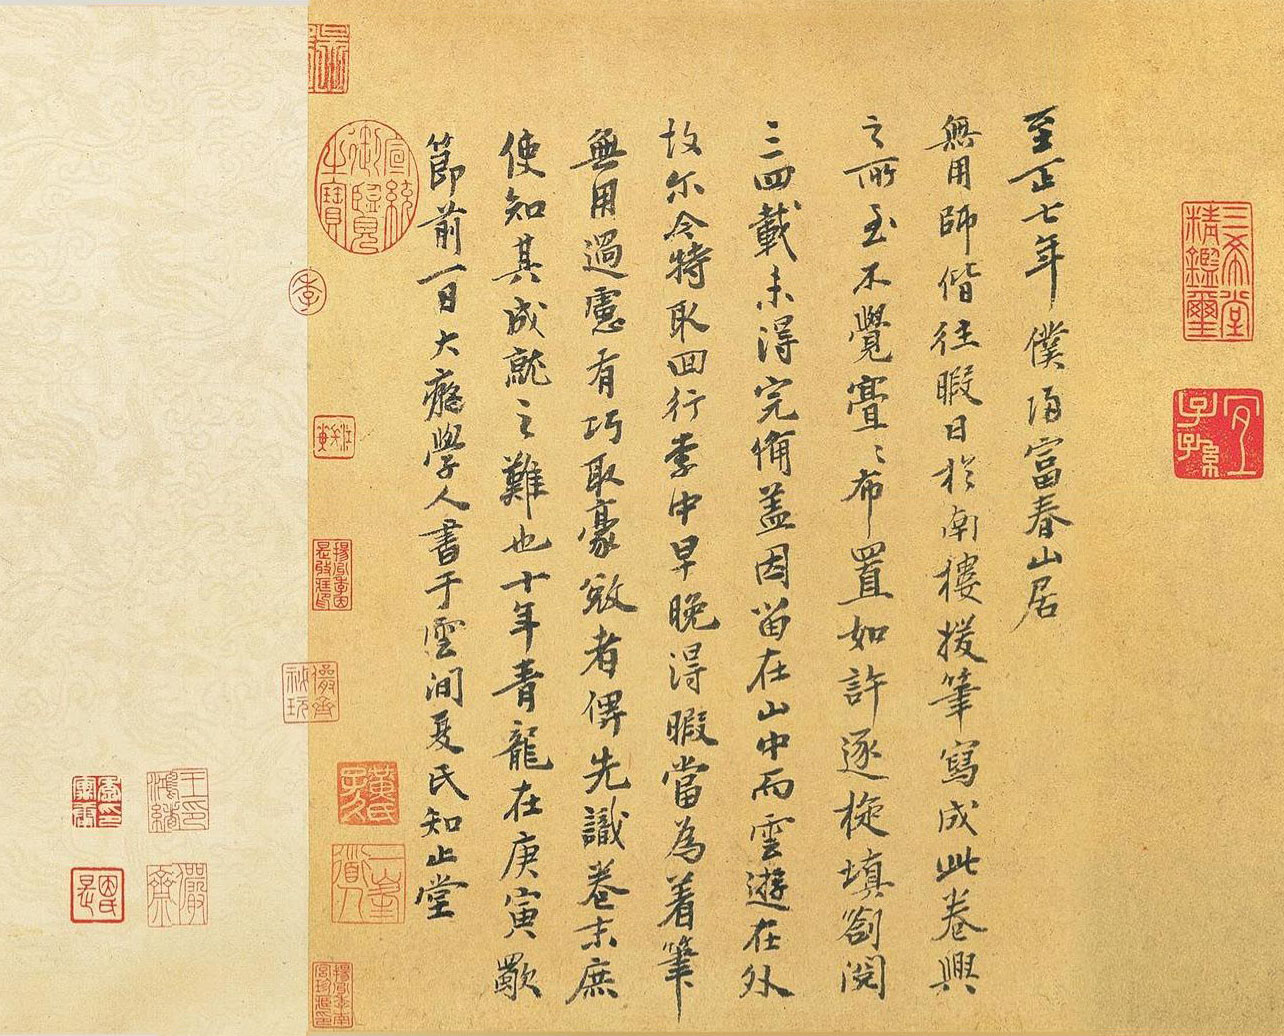 三希堂精鑑璽
宜子孫
至正七年僕歸富春山居
無用師偕往暇日於南樓援筆寫成此卷興
之所至不覺亹〻布置如許逐旋填劄閱
三四載未得完備盖因留在山中而雲遊在外
故尔今特取回行李中早晚得暇當為着筆
無用過慮有巧取豪敚者俾先識卷末庶
使知其成就之難也十年青龍在庚寅歜
節前一日大癡學人書于雲間夏氏知止堂
宣統御覽之寶
季
黃氏子久
一峯道人